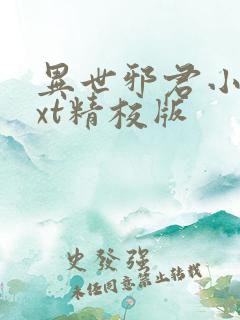 異世邪君小
xt精校版
史發強
未经同意禁止转载